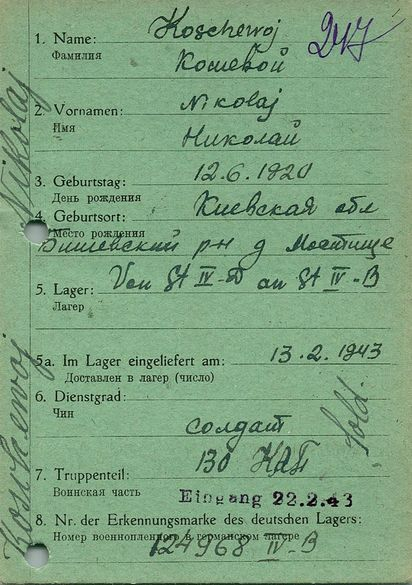 1. Name: Koschewoj
Фамилия Кошевой
247
2. Vornamen: Nikolaj
Имя Николай
3. Geburtstag: 12.6.1920
День рождения
4. Geburtsort: Киевская обл
Место рождения
Бишевский р-н д Мостище
5. Lager: Von St IV-D an St IV-B
Лагерь
5a. Im Lager eingeliefert am: 13.2.1943
Доставлен в лагерь (число)
6. Dienstgrad:
Чин солдат
Sold.
130
7. Truppenteil:
Воинская часть Eingang 22.2.43
8. Nr. der Erkennungsmarke des deutschen Lagers:
Номер военнопленного в германском лагере
124968 IV-B
Koschewoj Nikolaj